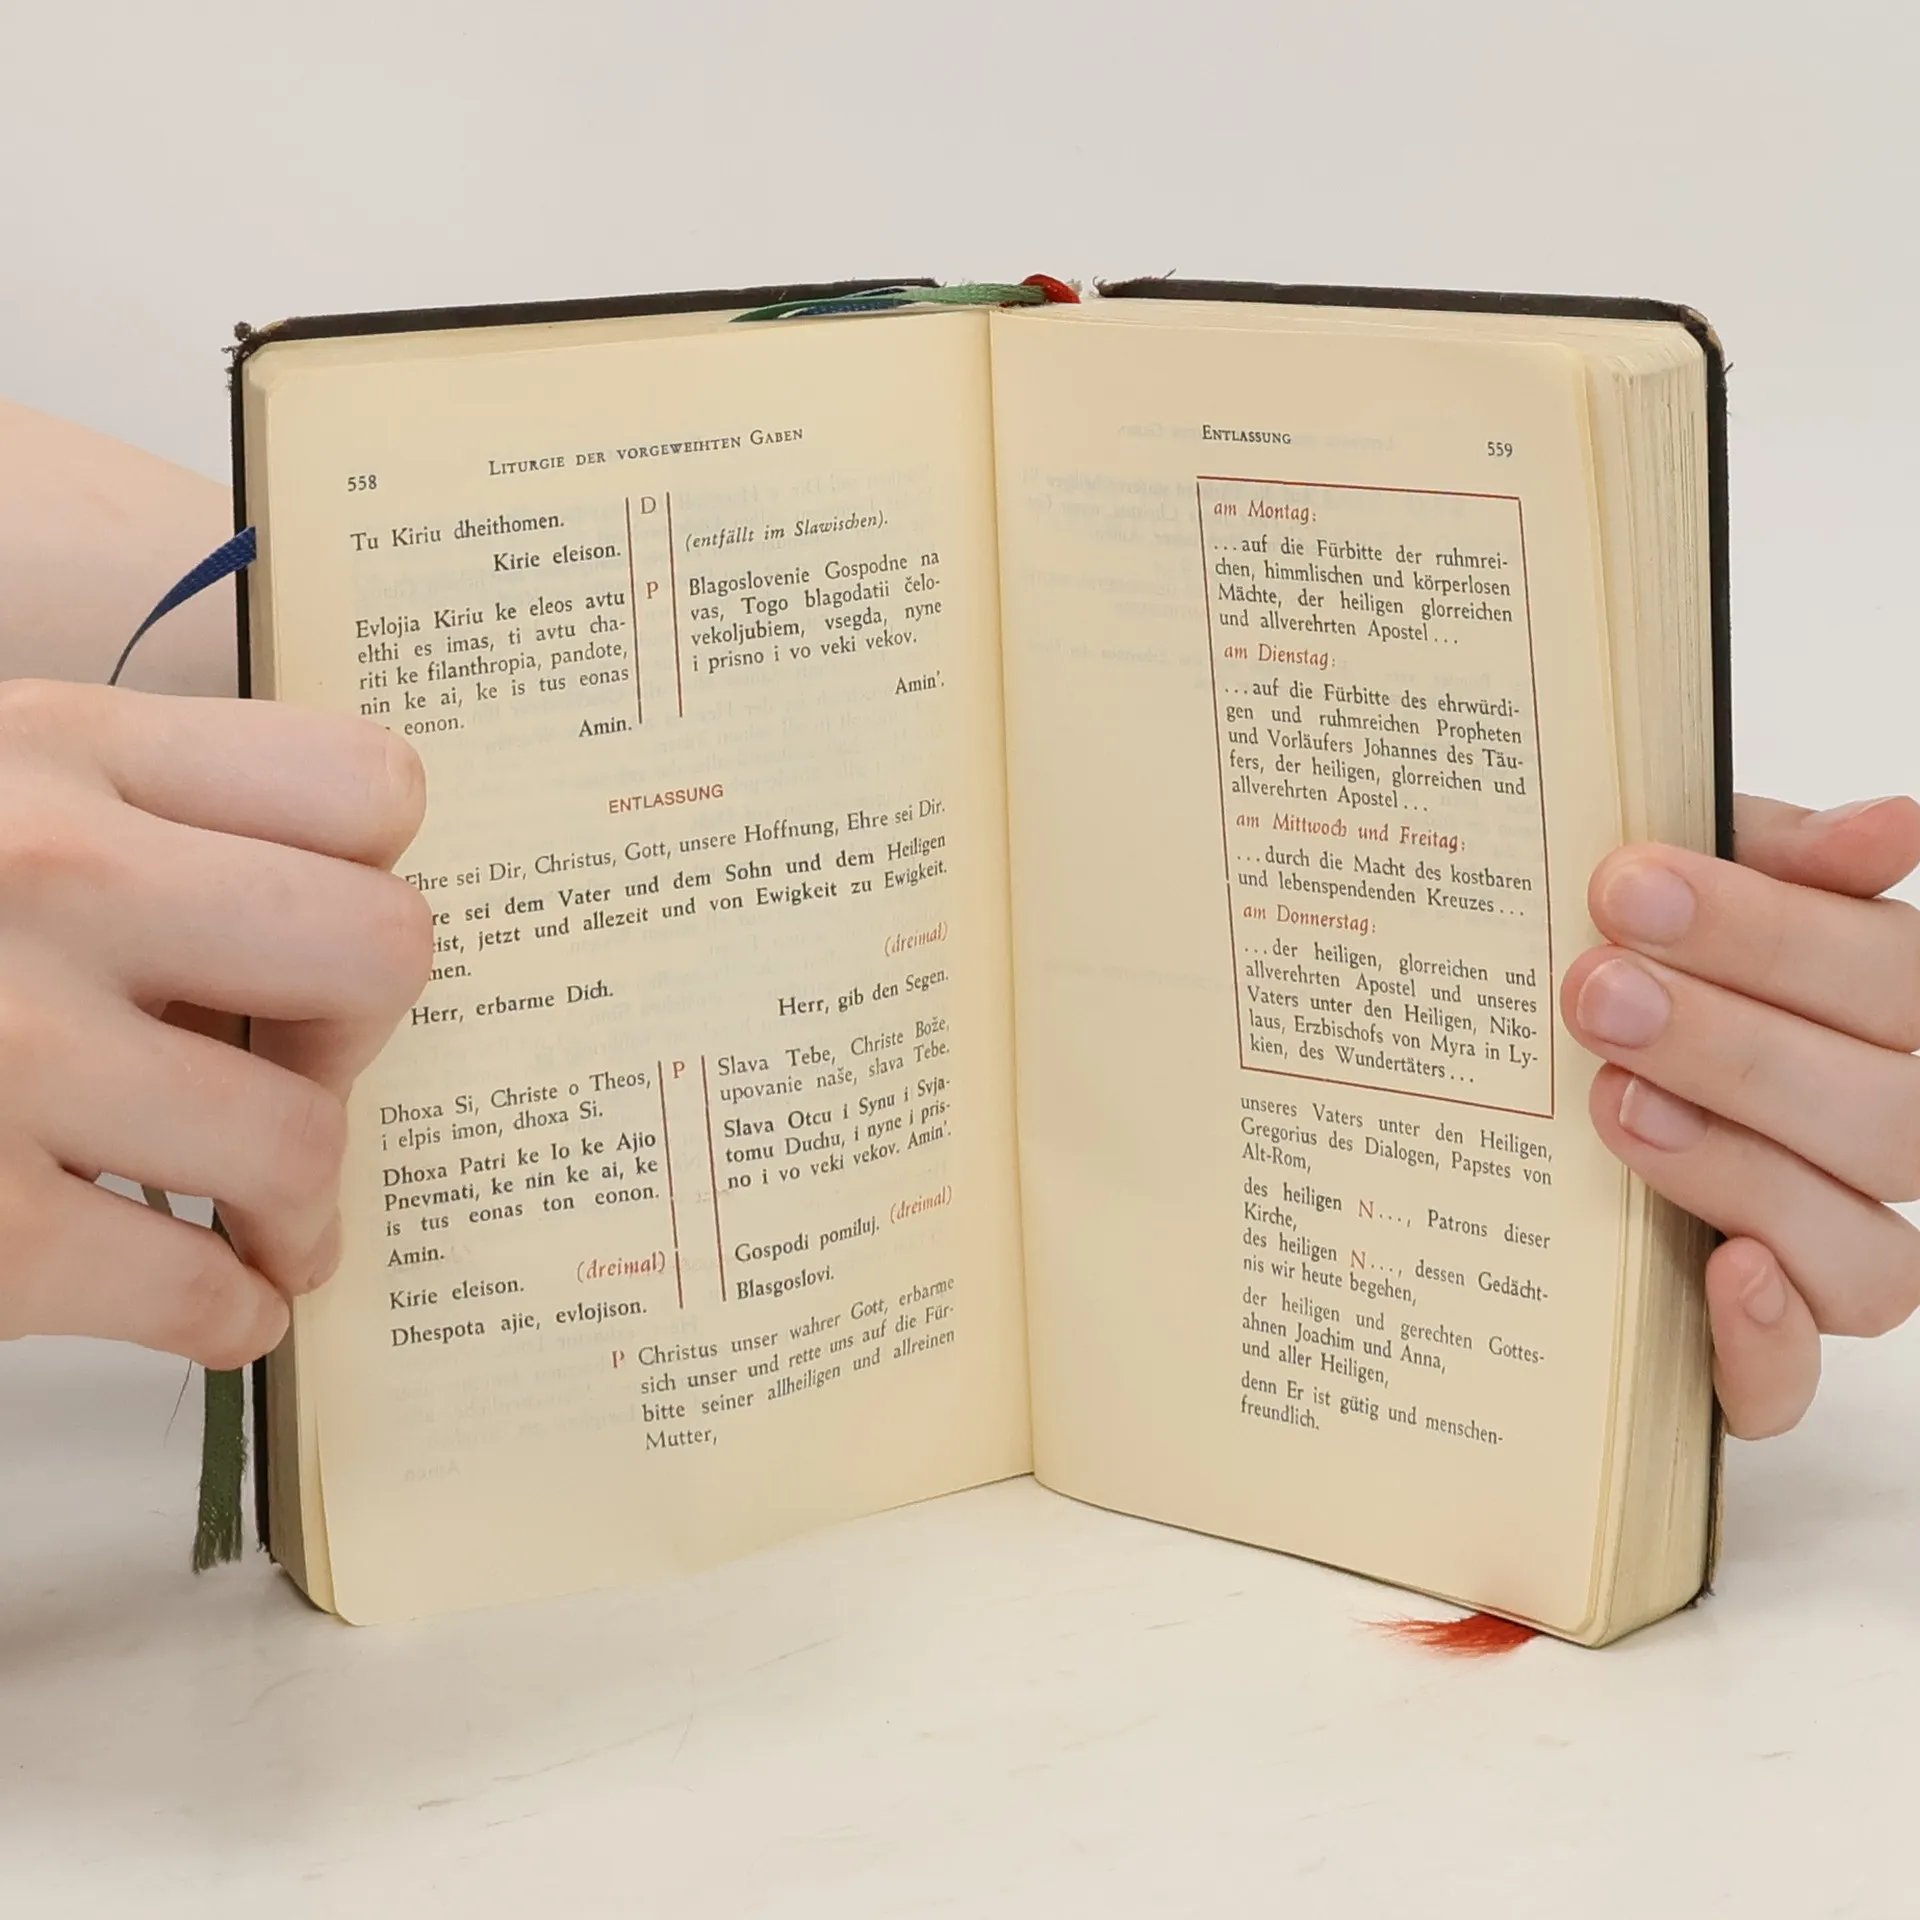 558
LITURGIE DER VORGEWEIHTEN GABEN
Tu Kiriu dheithomen.
Kirie eleison.
Evlojia Kiriu ke eleos avtu
elthi es imas, ti avtu cha-
riti ke filanthropia, pandote,
nin ke ai, ke is tus eonas
eonon.
Amin.
D
P
(entfällt im Slawischen).
Blagoslovenie Gospodne na
vas, Togo blagodatii čelo-
vekoljubiem, vsegda, nyne
i prisno i vo veki vekov.
Amin'.
ENTLASSUNG
Ehre sei Dir, Christus, Gott, unsere Hoffnung, Ehre sei Dir.
re sei dem Vater und dem Sohn und dem Heiligen
ist, jetzt und allezeit und von Ewigkeit zu Ewigkeit.
men.
(dreimal)
Herr, erbarme Dich.
Herr, gib den Segen.
Dhoxa Si, Christe o Theos,
i elpis imon, dhoxa Si.
Dhoxa Patri ke Io ke Ajio
Pnevmati, ke nin ke ai, ke
is tus eonas ton eonon.
Amin.
Kirie eleison. (dreimal)
Dhespota ajie, evlojison.
P
Slava Tebe, Christe Bože,
upovanie naše, slava Tebe.
Slava Otcu i Synu i Svja-
tomu Duchu, i nyne i pris-
no i vo veki vekov. Amin'.
Gospodi pomiluj. (dreimal)
Blasgoslovi.
P Christus unser wahrer Gott, erbarme
sich unser und rette uns auf die Für-
bitte seiner allheiligen und allreinen
Mutter,
ENTLASSUNG
559
am Montag:
...auf die Fürbitte der ruhmrei-
chen, himmlischen und körperlosen
Mächte, der heiligen glorreichen
und allverehrten Apostel...
am Dienstag:
...auf die Fürbitte des ehrwürdi-
gen und ruhmreichen Propheten
und Vorläufers Johannes des Täu-
fers, der heiligen, glorreichen und
allverehrten Apostel...
am Mittwoch und Freitag:
...durch die Macht des kostbaren
und lebenspendenden Kreuzes...
am Donnerstag:
...der heiligen, glorreichen und
allverehrten Apostel und unseres
Vaters unter den Heiligen, Niko-
laus, Erzbischofs von Myra in Ly-
kien, des Wundertäters...
unseres Vaters unter den Heiligen,
Gregorius des Dialogen, Papstes von
Alt-Rom,
des heiligen N..., Patrons dieser
Kirche,
des heiligen N..., dessen Gedächt-
nis wir heute begehen,
der heiligen und gerechten Gottes-
ahnen Joachim und Anna,
und aller Heiligen,
denn Er ist gütig und menschen-
freundlich.